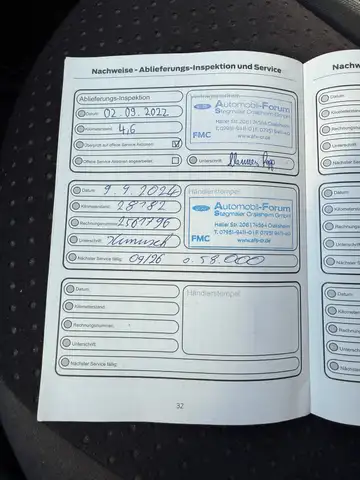 Nachweise - Ablieferungs-Inspektion und Service
Ablieferungs-Inspektion
Datum: 02.09.2022
Kilometerstand: 4,6
Überprüft auf offene Service-Aktionen
Offene Service-Aktionen abgearbeitet
Automobil-Forum
Stegmaier Crailsheim GmbH
FMC
www.afs-cr.de
Unterschrift:
Datum: 9.4.2024
Kilometerstand: 28782
Rechnungsnummer: 2567796
Unterschrift:
Nächster Service fällig: 09/26 o. 58.000
Händlerstempel:
Automobil-Forum
Stegmaier Crailsheim GmbH
Haller Str. 206 | 74564 Crailsheim
FMC
www.afs-cr.de
Datum:
Kilometerstand:
Rechnungsnummer:
Unterschrift:
Nächster Service fällig:
Händlerstempel:
32
Nachw
Datum:
Kilometerstand
Rechnungsn
Unterschrift
Nächster Se
Datum:
Kilometers
Rechnung
Unterschri
Nächster
Datum:
Kilometer
Rechnun
Unterschr
Nächste